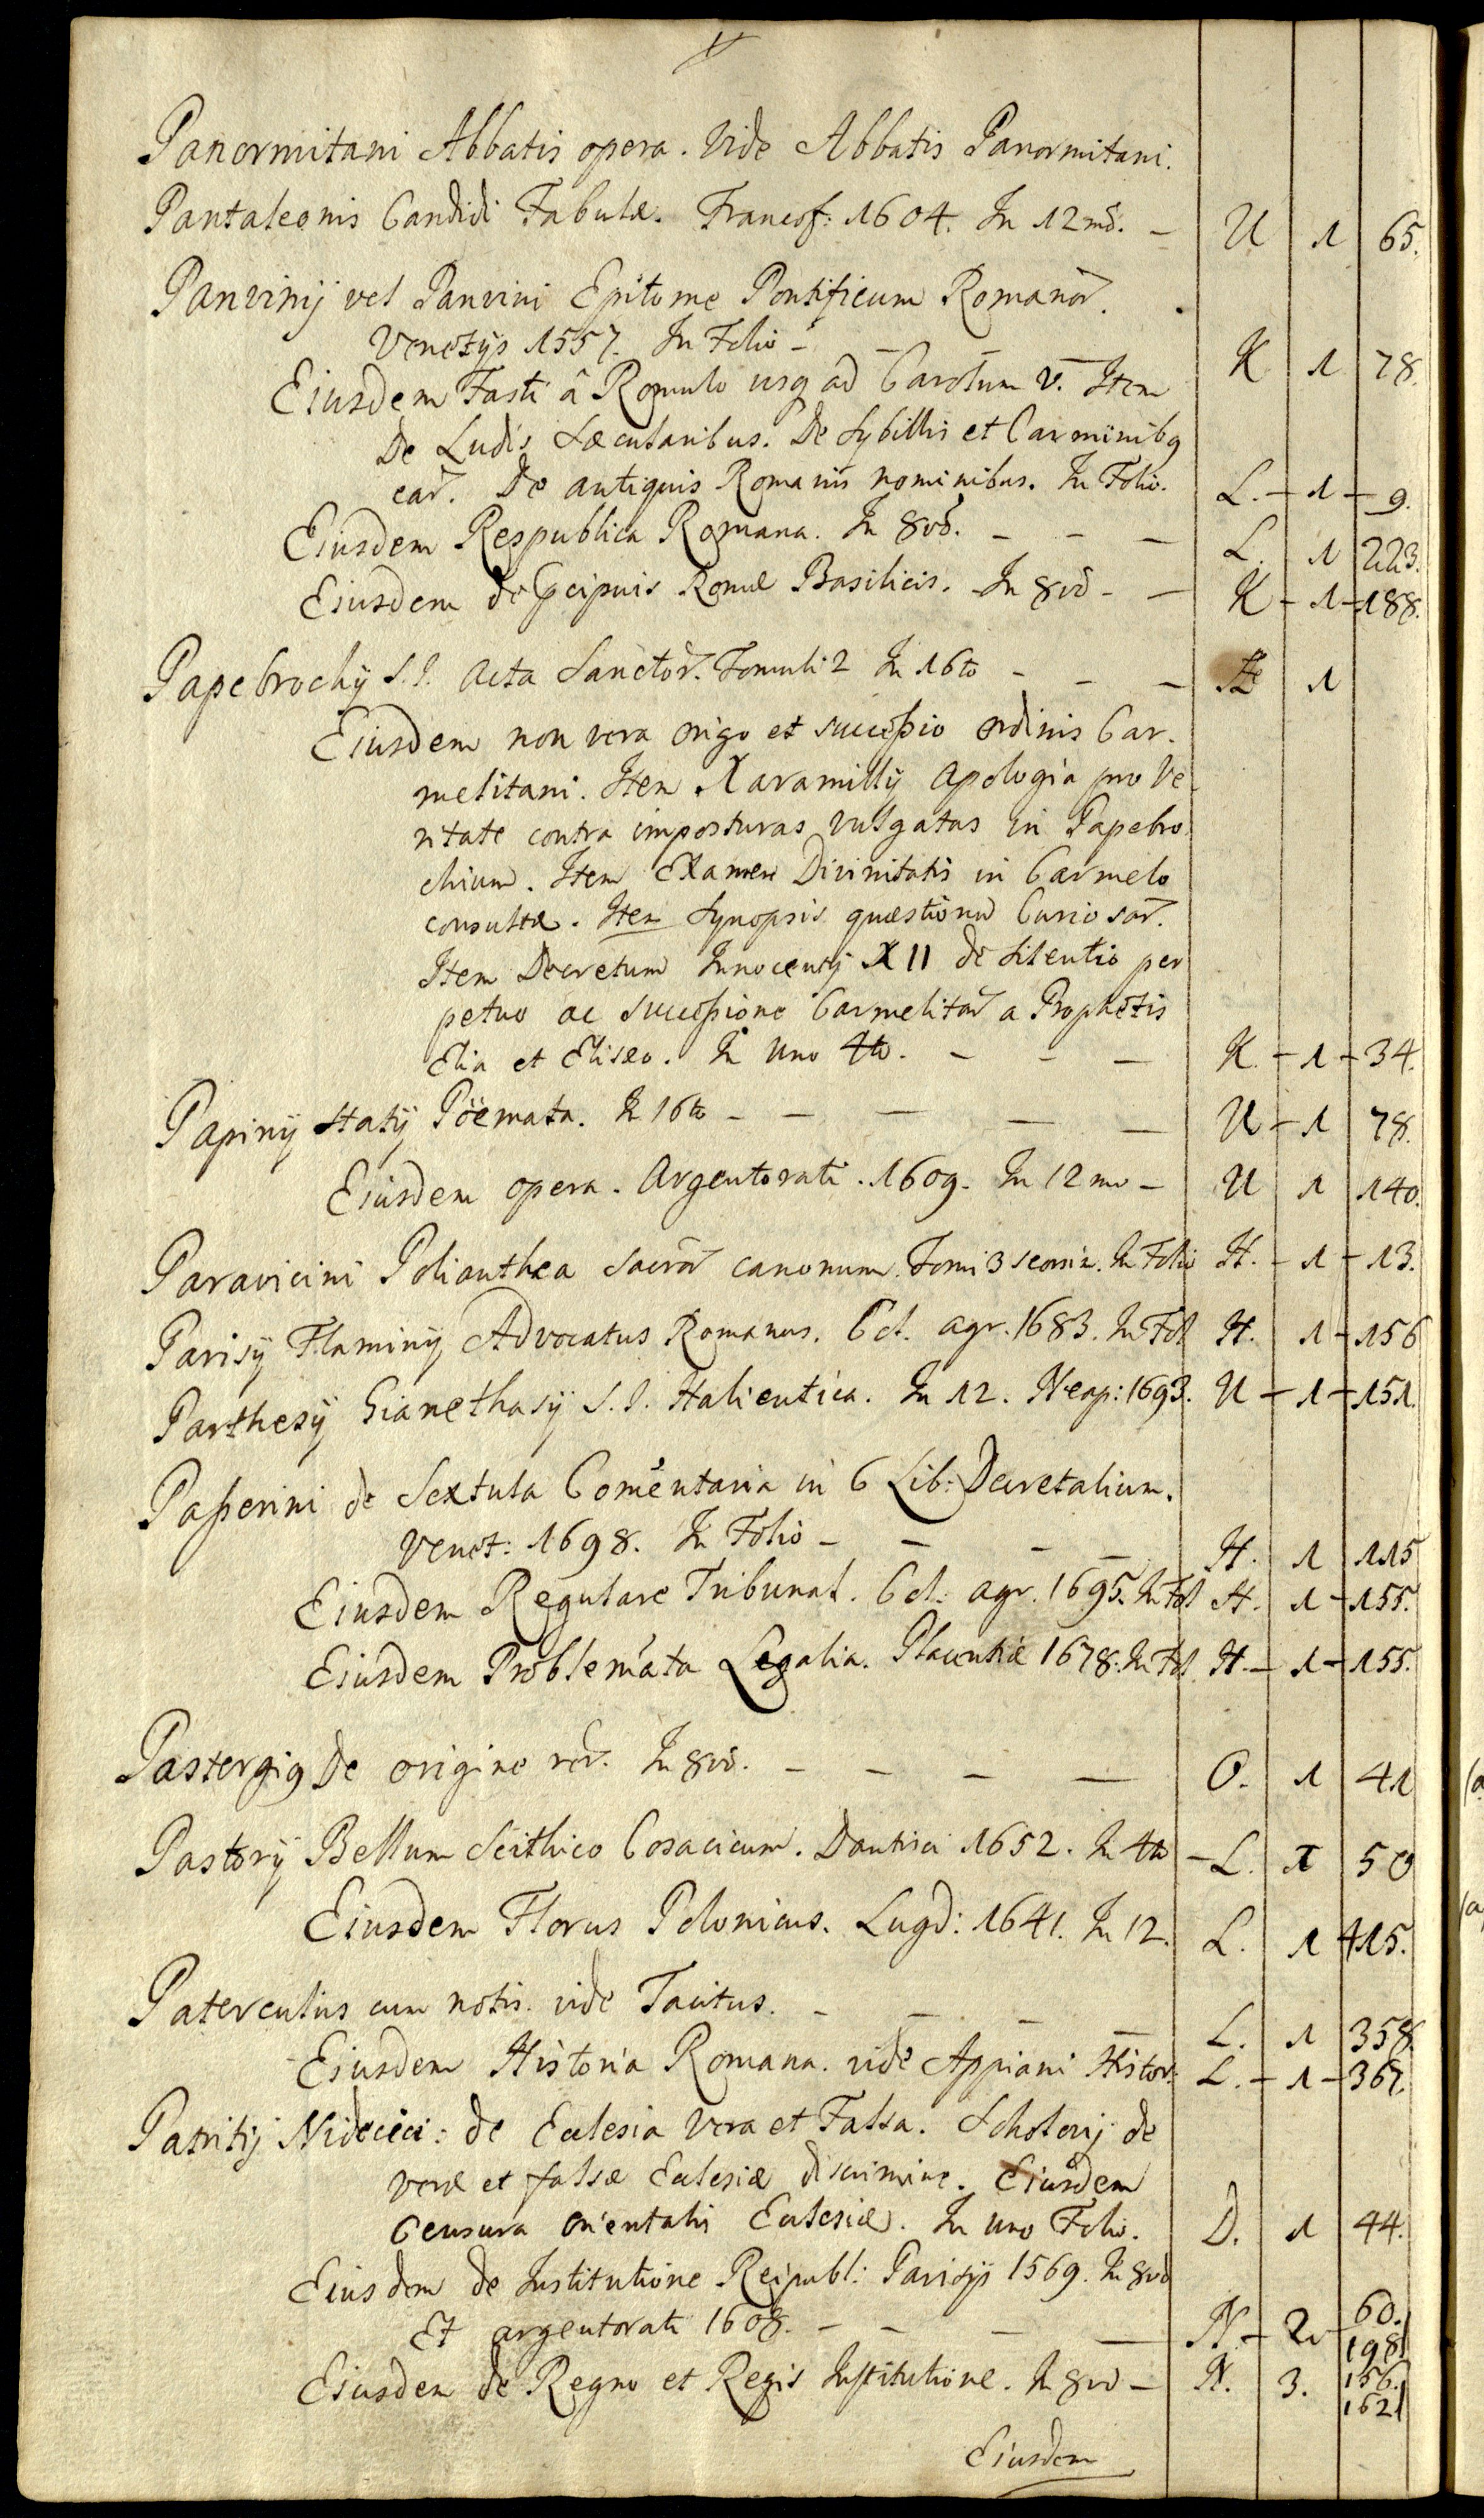 Panormitani Abbatis opera. Vide Abbatis Panormitani.
Pantaleonis Candidi Fabulæ. Francof: 1604. In 12mo. – U 1 65.
Panvinij vel Panvini Epitome Pontificum Romanor.
Venetijs 1557. In Folio – – – K 1 78.
Eiusdem Fasti â Romulo usq ad Carolum V. Item
De Ludis Sæcularibus. De Sybillis et Carminibq
ear. De antiquis Romanis nominibus. In Folio. L. – 1 – 9.
Eiusdem Respublica Romana. In 8vo. – – – L. 1 223.
Eiusdem de Pcipuis Romæ Basilicis. In 8vo – – K – 1 – 188.
Papebrochij S.J. Acta Sanctor. Tomuli 2 In 16to – – – 1
Eiusdem non vera origo et successio ordinis Car-
melitani. Item Xaramilly Apologia pro Ve-
ritate contra imposturas vulgatas in Papebro
chium. Item Examen Divinitatis in Carmelo
consultæ. Item Synopsis quæstionū Curiosar.
Item Decretum Innocentij XII de silentio per
petuo ac successione Carmelitar a Prophetis
Elia et Eliseo. In uno 4to. – – – K. – 1 – 34.
Papinij Statij Pöemata. In 16to – – – – – U – 1 78.
Eiusdem opera. Argentorati. 1609. In 12mo – U 1 140.
Paravicini Polianthea sacror canonum. Tomi 3 seorsim. In Folio H. – 1 – 13.
Parisij Flaminij Advocatus Romanus. Col. agr. 1683. In Fol H. 1 – 156
Parthesij Gianethasij S.J. Halieutica. In 12. Neap: 1693. U – 1 – 151.
Passerini de Sextula Comentaria in 6 Lib: Decretalium.
Venet: 1698. In Folio – – – – H. 1 115
Eiusdem Regulare Tribunal. Col: agr. 1695. In Fol H. 1 – 155.
Eiusdem Problemata Legalia. Placentiæ 1678. In Fol. H. – 1 – 155.
Pastergiq De origine rer. In 8vo. – – – – O. 1 41
Pastorij Bellum Scithico Cosacicum. Dantisci 1652. In 4to – L. 1 50
Eiusdem Florus Polonicus. Lugd: 1641. In 12. L. 1 415.
Paterculus cum notis. vide Tacitus. – – – – L. 1 358.
Eiusdem Historia Romana. vide Appiani Histor. L. – 1 – 367
Patritij Nidecici: de Eclesia vera et Falsa. Scholarij de
veræ et falsæ Eclesiæ discrimine. Eiusdem
Censura orientalis Eclesiæ. In uno Folio. D. 1 44.
Eiusdem de Institutione Reipubl: Parisijs 1569. In 8vo
Et argentorati 1608. – – – – N. – 2 – 60. 198
Eiusdem de Regno et Regis Institutione. In 8vo – N. 3. 156. 162
Eiusdem